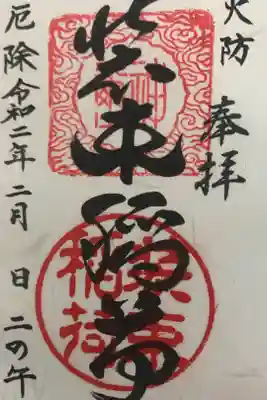 火防
奉拝
装束稲荷
厄除 令和二年二月 日 二の午